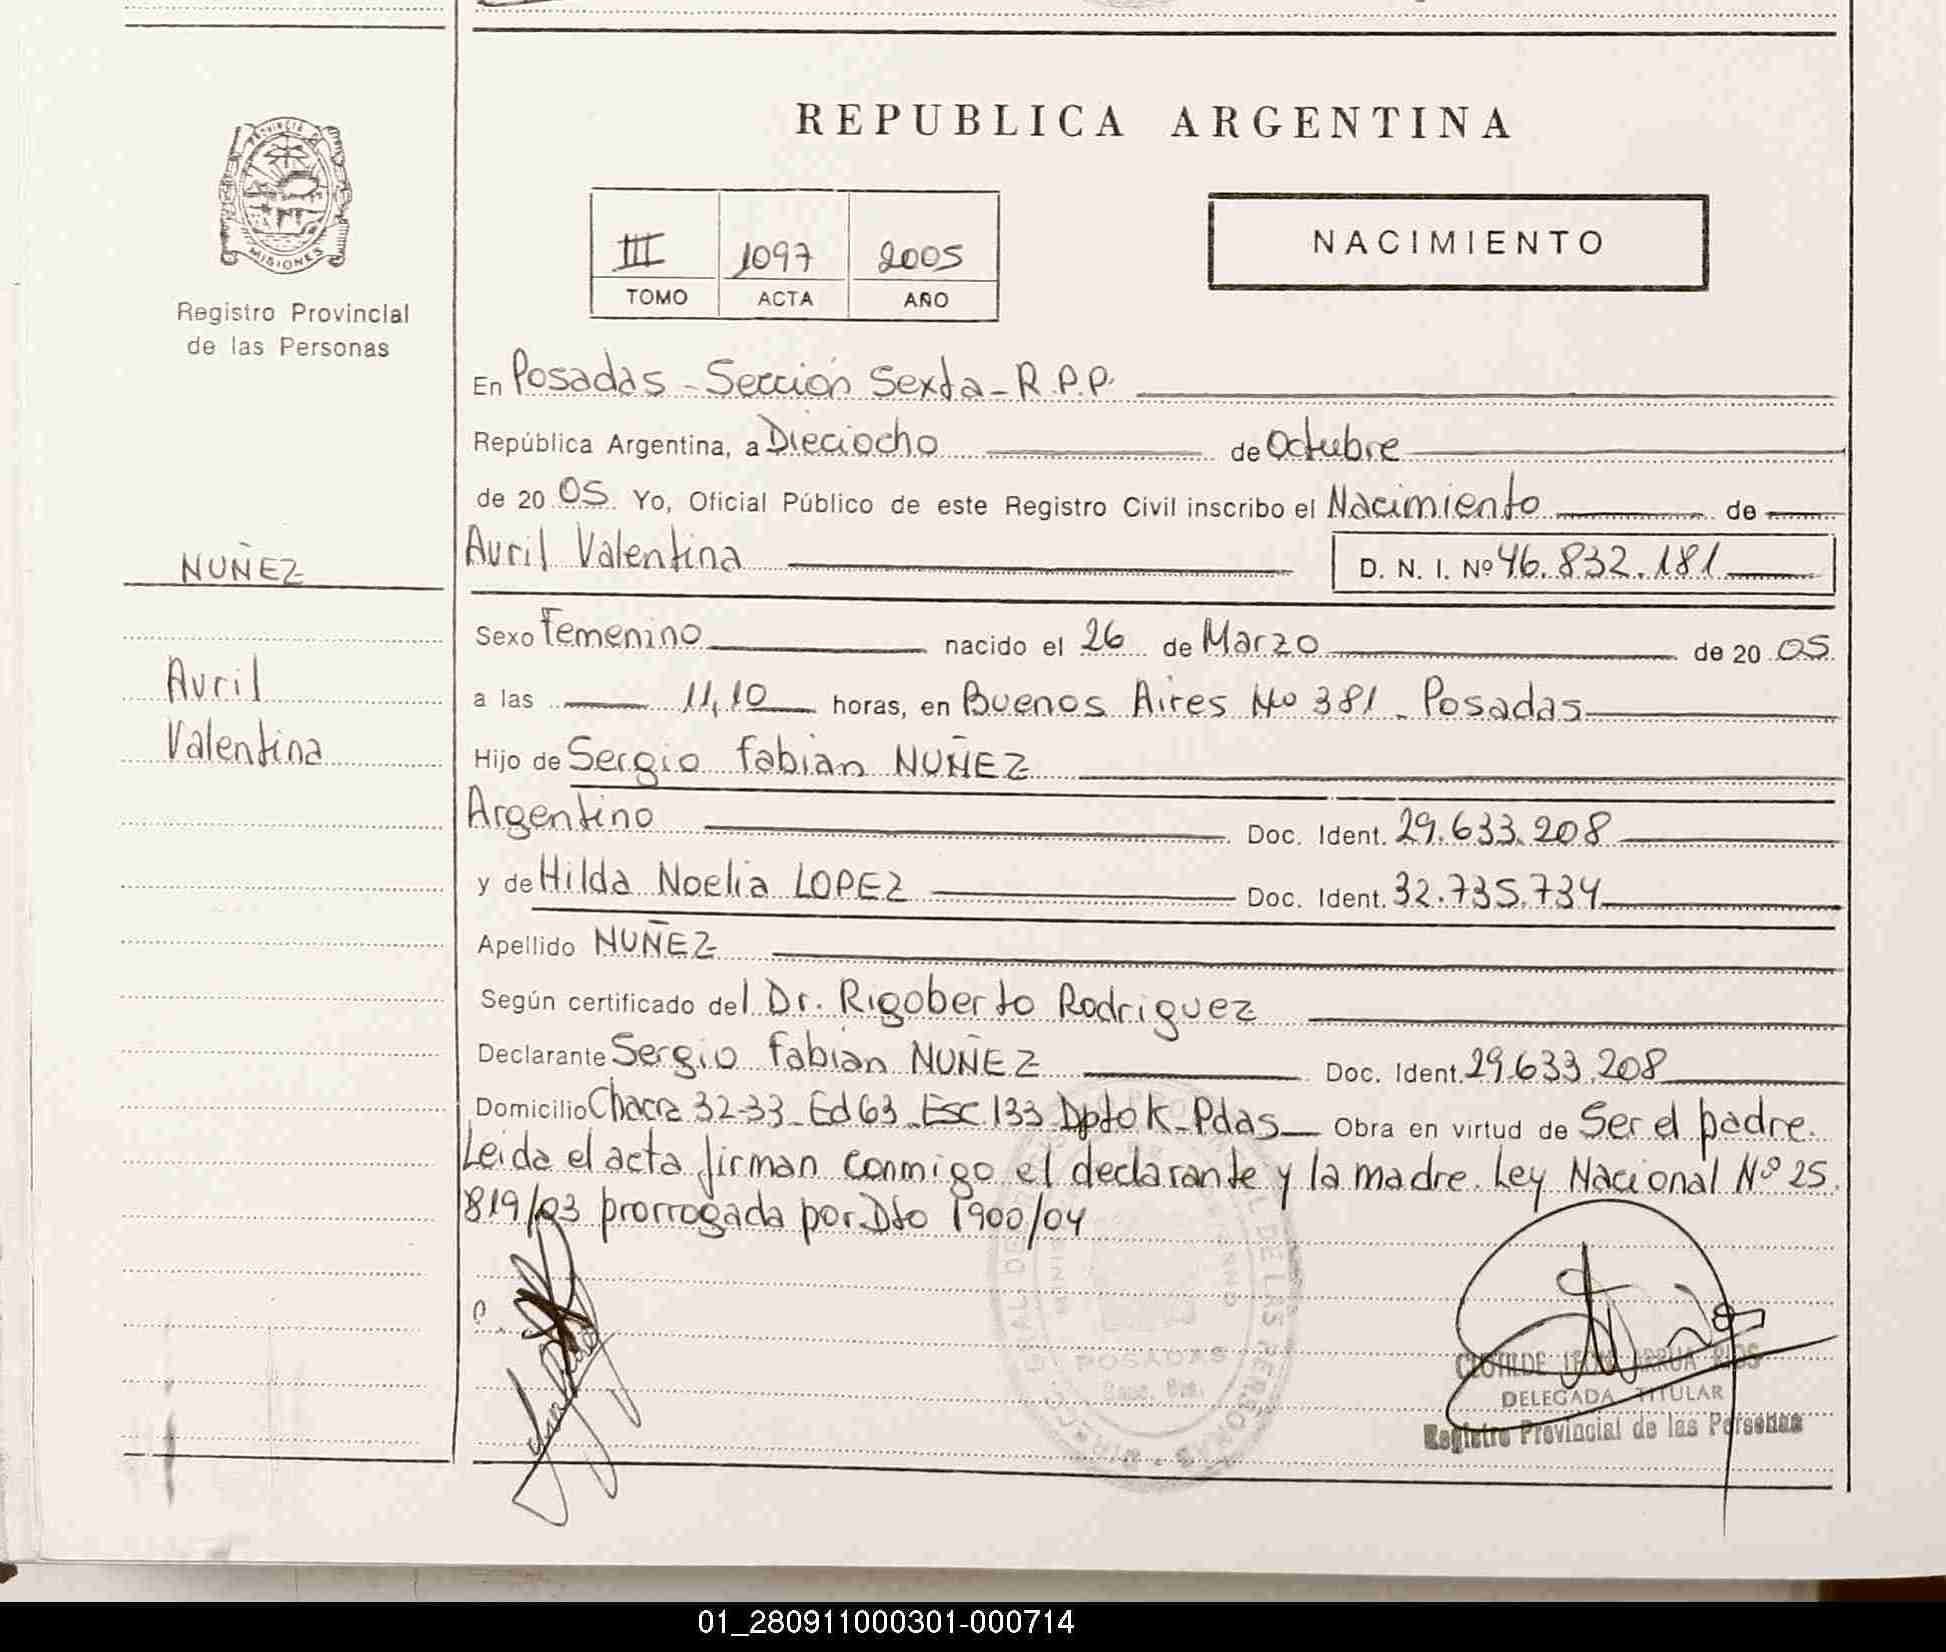 REPUBLICA ARGENTINA
PROVINCIA DE
MISIONES
Registro Provincial
de las Personas
III 1097 2005
TOMO ACTA AÑO
NACIMIENTO
En Posadas - Sección Sexta - R.P.P.
República Argentina, a Dieciocho de Octubre
de 2005 Yo, Oficial Público de este Registro Civil inscribo el Nacimiento de
NUÑEZ
Avril Valentina D. N. I. Nº 46.832.181
Sexo Femenino nacido el 26 de Marzo de 2005
Avril
Valentina
a las 11,10 horas, en Buenos Aires Nº 381 - Posadas
Hijo de Sergio Fabian NUÑEZ
Argentino Doc. Ident. 29.633.208
y de Hilda Noelia LOPEZ Doc. Ident. 32.735.734
Apellido NUÑEZ
Según certificado del Dr. Rigoberto Rodriguez
Declarante Sergio Fabian NUÑEZ Doc. Ident. 29.633.208
Domicilio Chacra 32-33 - Ed 63 - Esc. 133 Dpto K - Pdas Obra en virtud de Ser el padre.
Leida el acta firman conmigo el declarante y la madre. Ley Nacional Nº 25.
819/03 prorrogada por Dto 1900/04
POSADAS
DE LAS PERSONAS
CLOTILDE ARRUA RIOS
DELEGADA TITULAR
Registro Provincial de las Personas
01_280911000301-000714